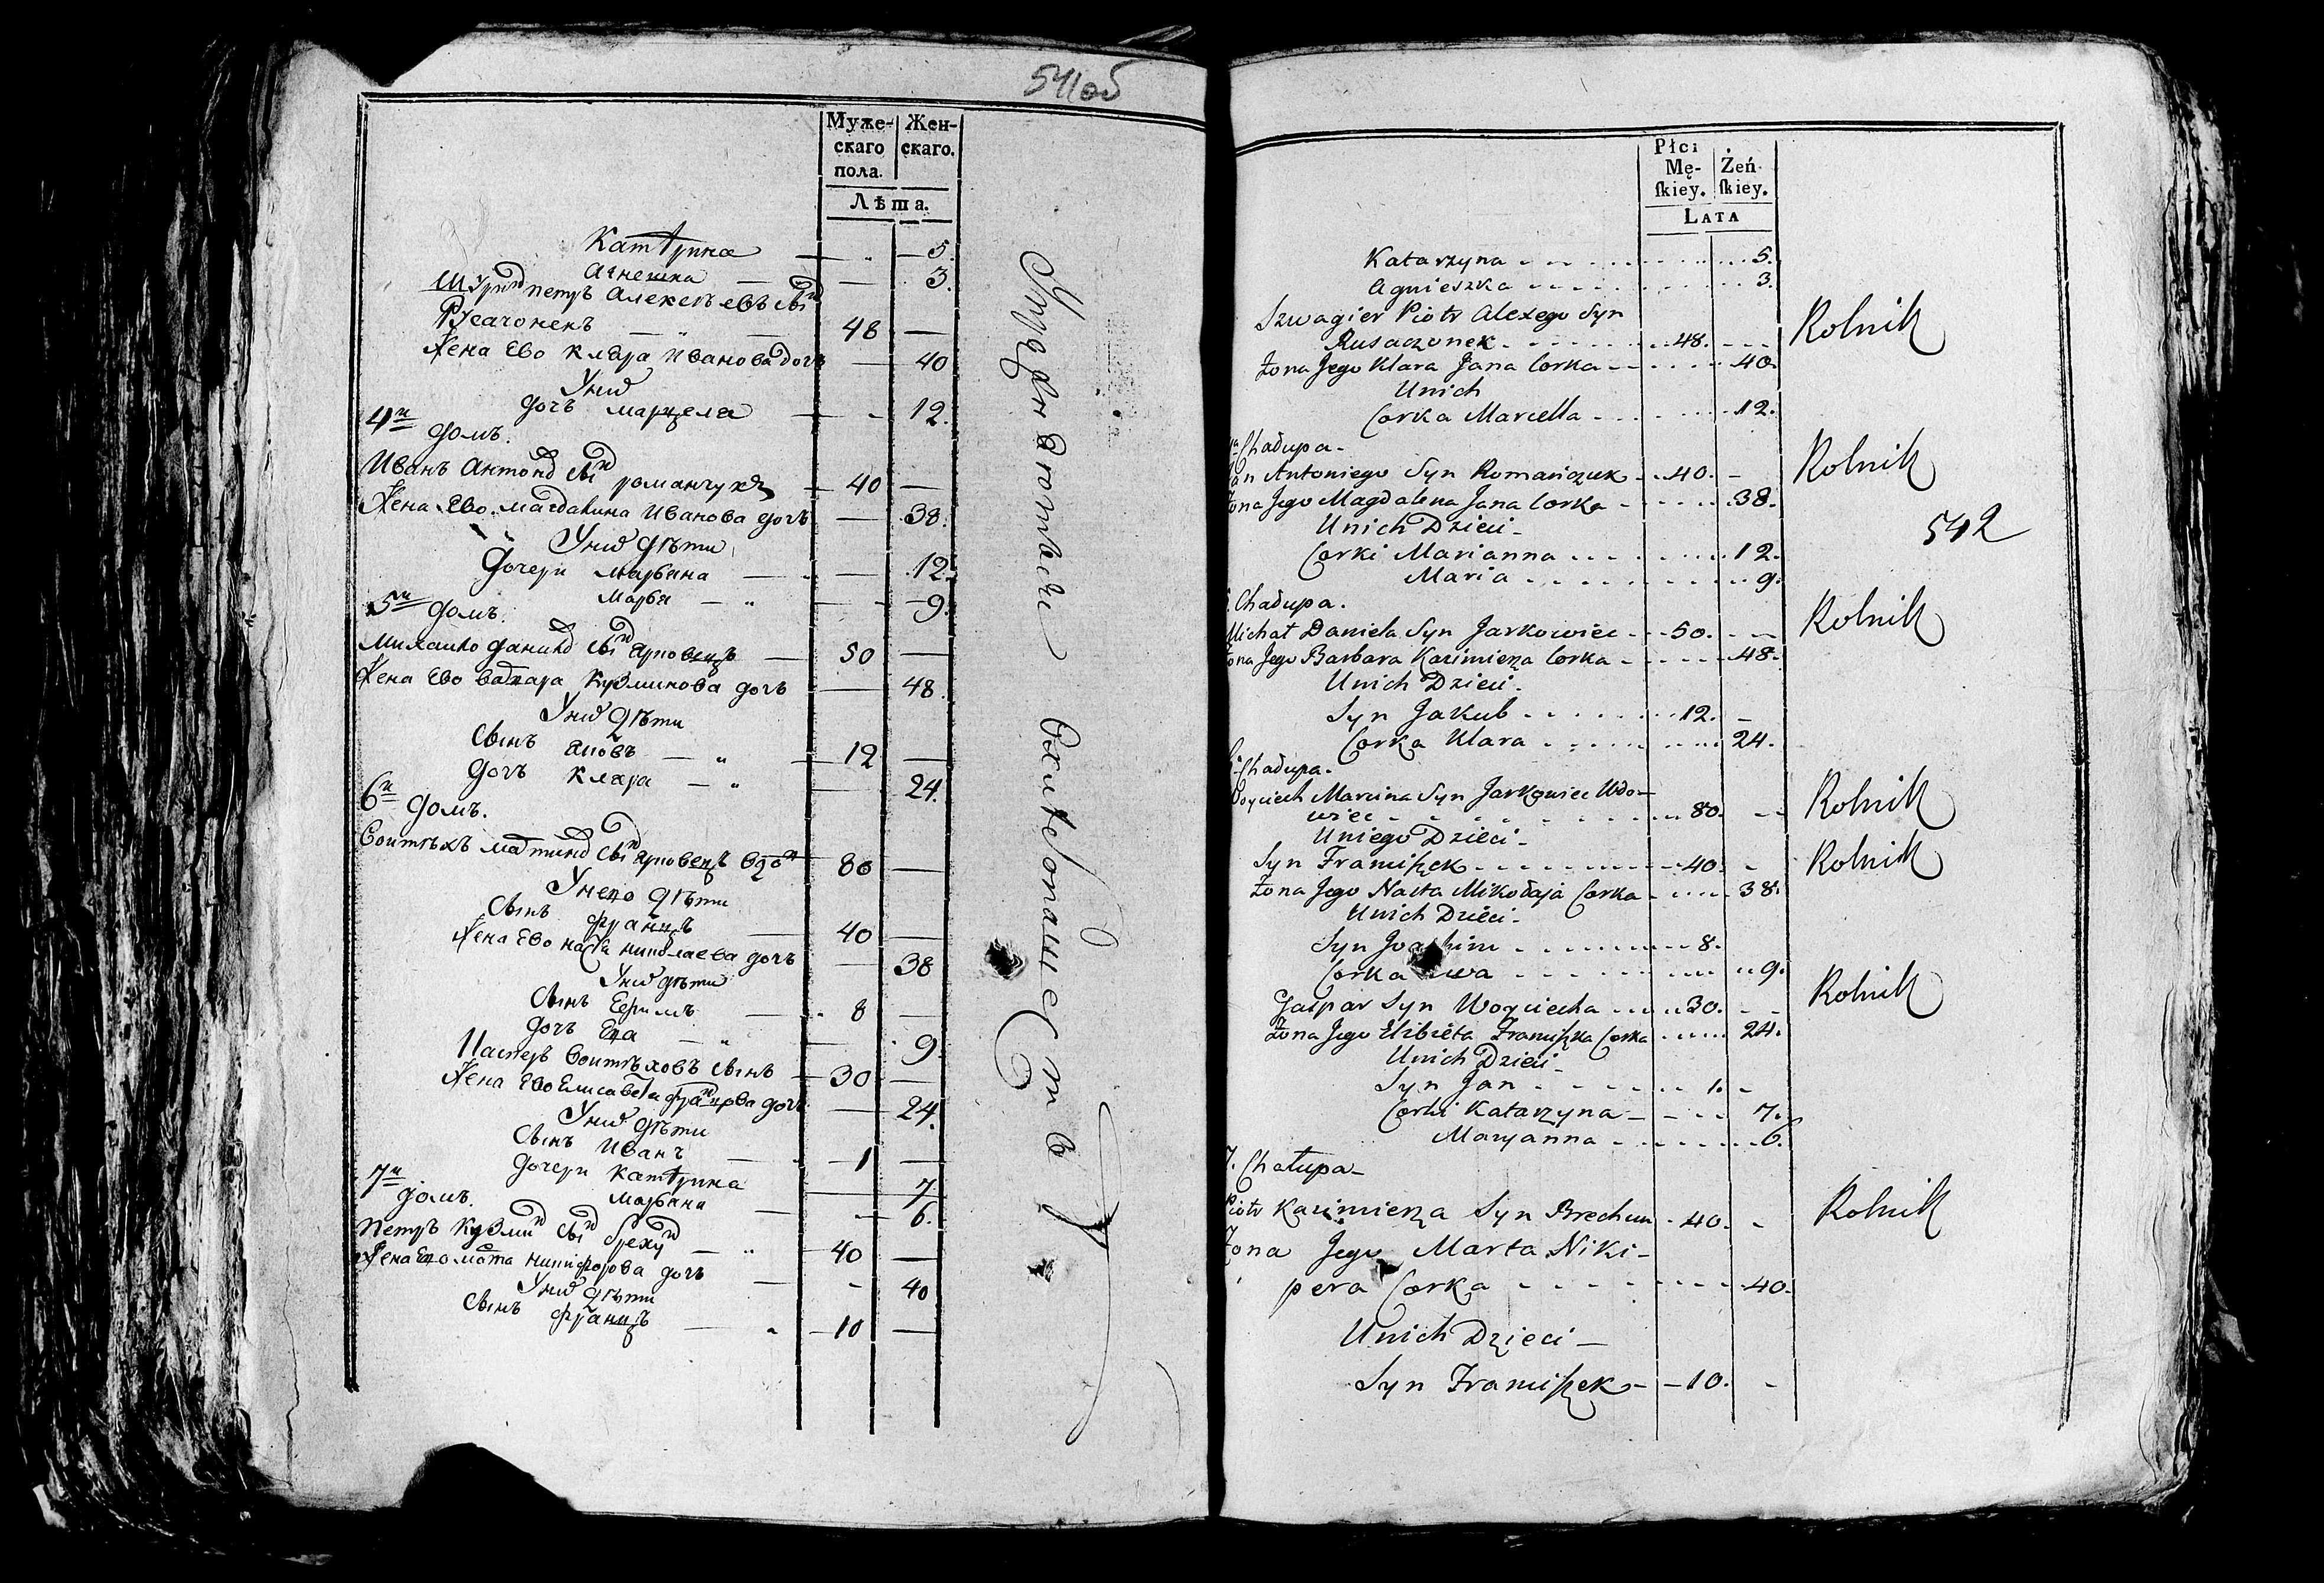 541об
Муже-
скаго
пола.
Жен-
скаго.
Лѣта.
Катерина — 5.
Агнешка — 3.
Шуринъ Петръ Алексѣевъ сынъ
Русачонекъ — 48 —
Жена Ево Клара Иванова дочь — 40
У них
дочь Марцела — 12.
4й домъ.
Иванъ Антонов сын Романчукъ — 40 —
Жена Ево Магдалина Иванова дочь — 38.
У них дѣти
дочери Марьяна — 12.
Марья — 9.
5й домъ.
Михайло Данилов сын — 50 —
Жена Ево Кузминова дочь — 48.
У них дѣти
Сынъ Яковъ — 12 —
дочь Клара — 24.
6й домъ.
Воитѣхъ сын — 80 —
У нево дѣти
Сынъ Францъ — 40 —
Жена Ево Настя Николаева дочь — 38
У них дѣти
Сынъ — 8 —
дочь Ева — 9.
Каспер Воитѣховъ Сынъ — 30 —
Жена Ево Елисавета дочь — 24.
У них дѣти
Сынъ Иванъ — 1 —
дочери Катерина — 7
Марьяна — 6.
7й домъ.
Петръ Кузмин сын Брехун — 40 —
Жена Ево Никифорова дочь — 40
У них дѣти
Сынъ Францъ — 10 —
Płci
Mę-
ſkiey.
Żeń-
ſkiey.
LATA
Katarzyna - - - 5.
Agnieszka - - - 3.
Szwagier Piotr Alexego Syn
Rusaczonek - - - 48. - - Rolnik
Żona Jego Klara Jana Corka - - - 40.
Unich
Corka Marcella - - - 12.
Chałupa -
Antoniego Syn Romańczuk - 40. - Rolnik
Żona Jego Magdalena Jana Corka - - - 38.
542
Unich Dzieci -
Corki Marianna - - - 12.
Maria - - - 9.
Chałupa.
Michał Daniela Syn Jarkowiec - - 50. - - Rolnik
Żona Jego Barbara Kazimierza Corka - - - 48.
Unich Dzieci -
Syn Jakub - - - 12. -
Corka Klara - - - 24.
Chałupa -
Woyciech Marcina Syn Jarkowiec Wdo-
wiec - - - 80. - - Rolnik
Uniego Dzieci -
Syn Franciſzek - - - 40. - Rolnik
Żona Jego Nasta Mikołaja Corka - - - 38.
Unich Dzieci -
Syn - - - 8.
Corka - - - 9.
Gaspar Syn Woyciecha - - - 30. - - Rolnik
Żona Jego Elżbieta Franciſzka Corka - - - 24.
Unich Dzieci -
Syn Jan - - - 1. -
Corki Katarzyna - - - 7.
Maryanna - - - 6.
7. Chałupa -
Piotr Kazimierza Syn Brechun - 40. - Rolnik
Żona Jego Marta Niki-
pera Corka - - - 40.
Unich Dzieci -
Syn Franciſzek - - 10. -